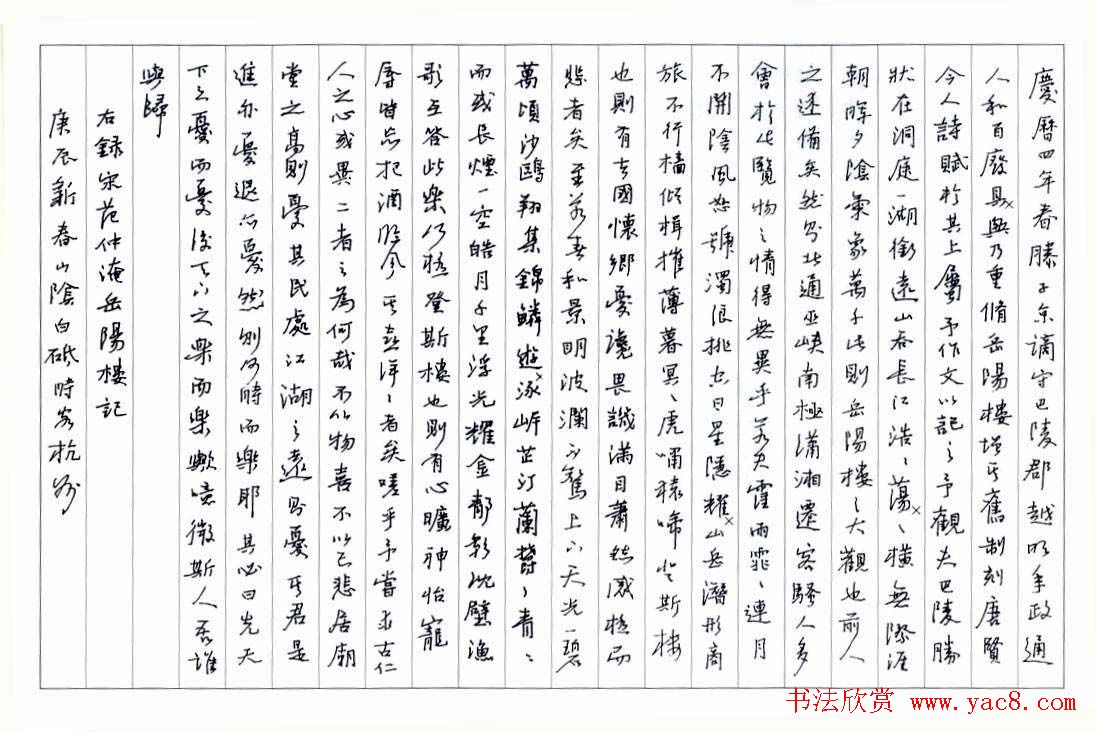 慶曆四年春滕子京謫守巴陵郡越明年政通
人和百廢具興乃重脩岳陽樓增其舊制刻唐賢
今人詩賦於其上屬予作文以記之予觀夫巴陵勝
狀在洞庭一湖銜遠山吞長江浩〻蕩〻橫無際涯
朝暉夕陰氣象萬千此則岳陽樓之大觀也前人
之述備矣然則北通巫峽南極瀟湘遷客騷人多
會於此覽物之情得無異乎若夫霪雨霏〻連月
不開陰風怒號濁浪排空日星隱耀山岳潛形商
旅不行檣傾楫摧薄暮冥〻虎嘯猿啼登斯樓
也則有去國懷鄉憂讒畏譏滿目蕭然感極而
悲者矣至若春和景明波瀾不驚上下天光一碧
萬頃沙鷗翔集錦鱗游泳岸芷汀蘭鬱〻青〻
而或長煙一空皓月千里浮光耀金靜影沈璧漁
歌互答此樂何極登斯樓也則有心曠神怡寵
辱皆忘把酒臨風其喜洋〻者矣嗟乎予嘗求古仁
人之心或異二者之為何哉不以物喜不以己悲居廟
堂之高則憂其民處江湖之遠則憂其君是
進亦憂退亦憂然則何時而樂耶其必曰先天
下之憂而憂後天下之樂而樂歟噫微斯人吾誰
與歸
右録宋范仲淹岳陽樓記
庚辰新春山陰白砥時客杭州
书法欣赏 www.yac8.com